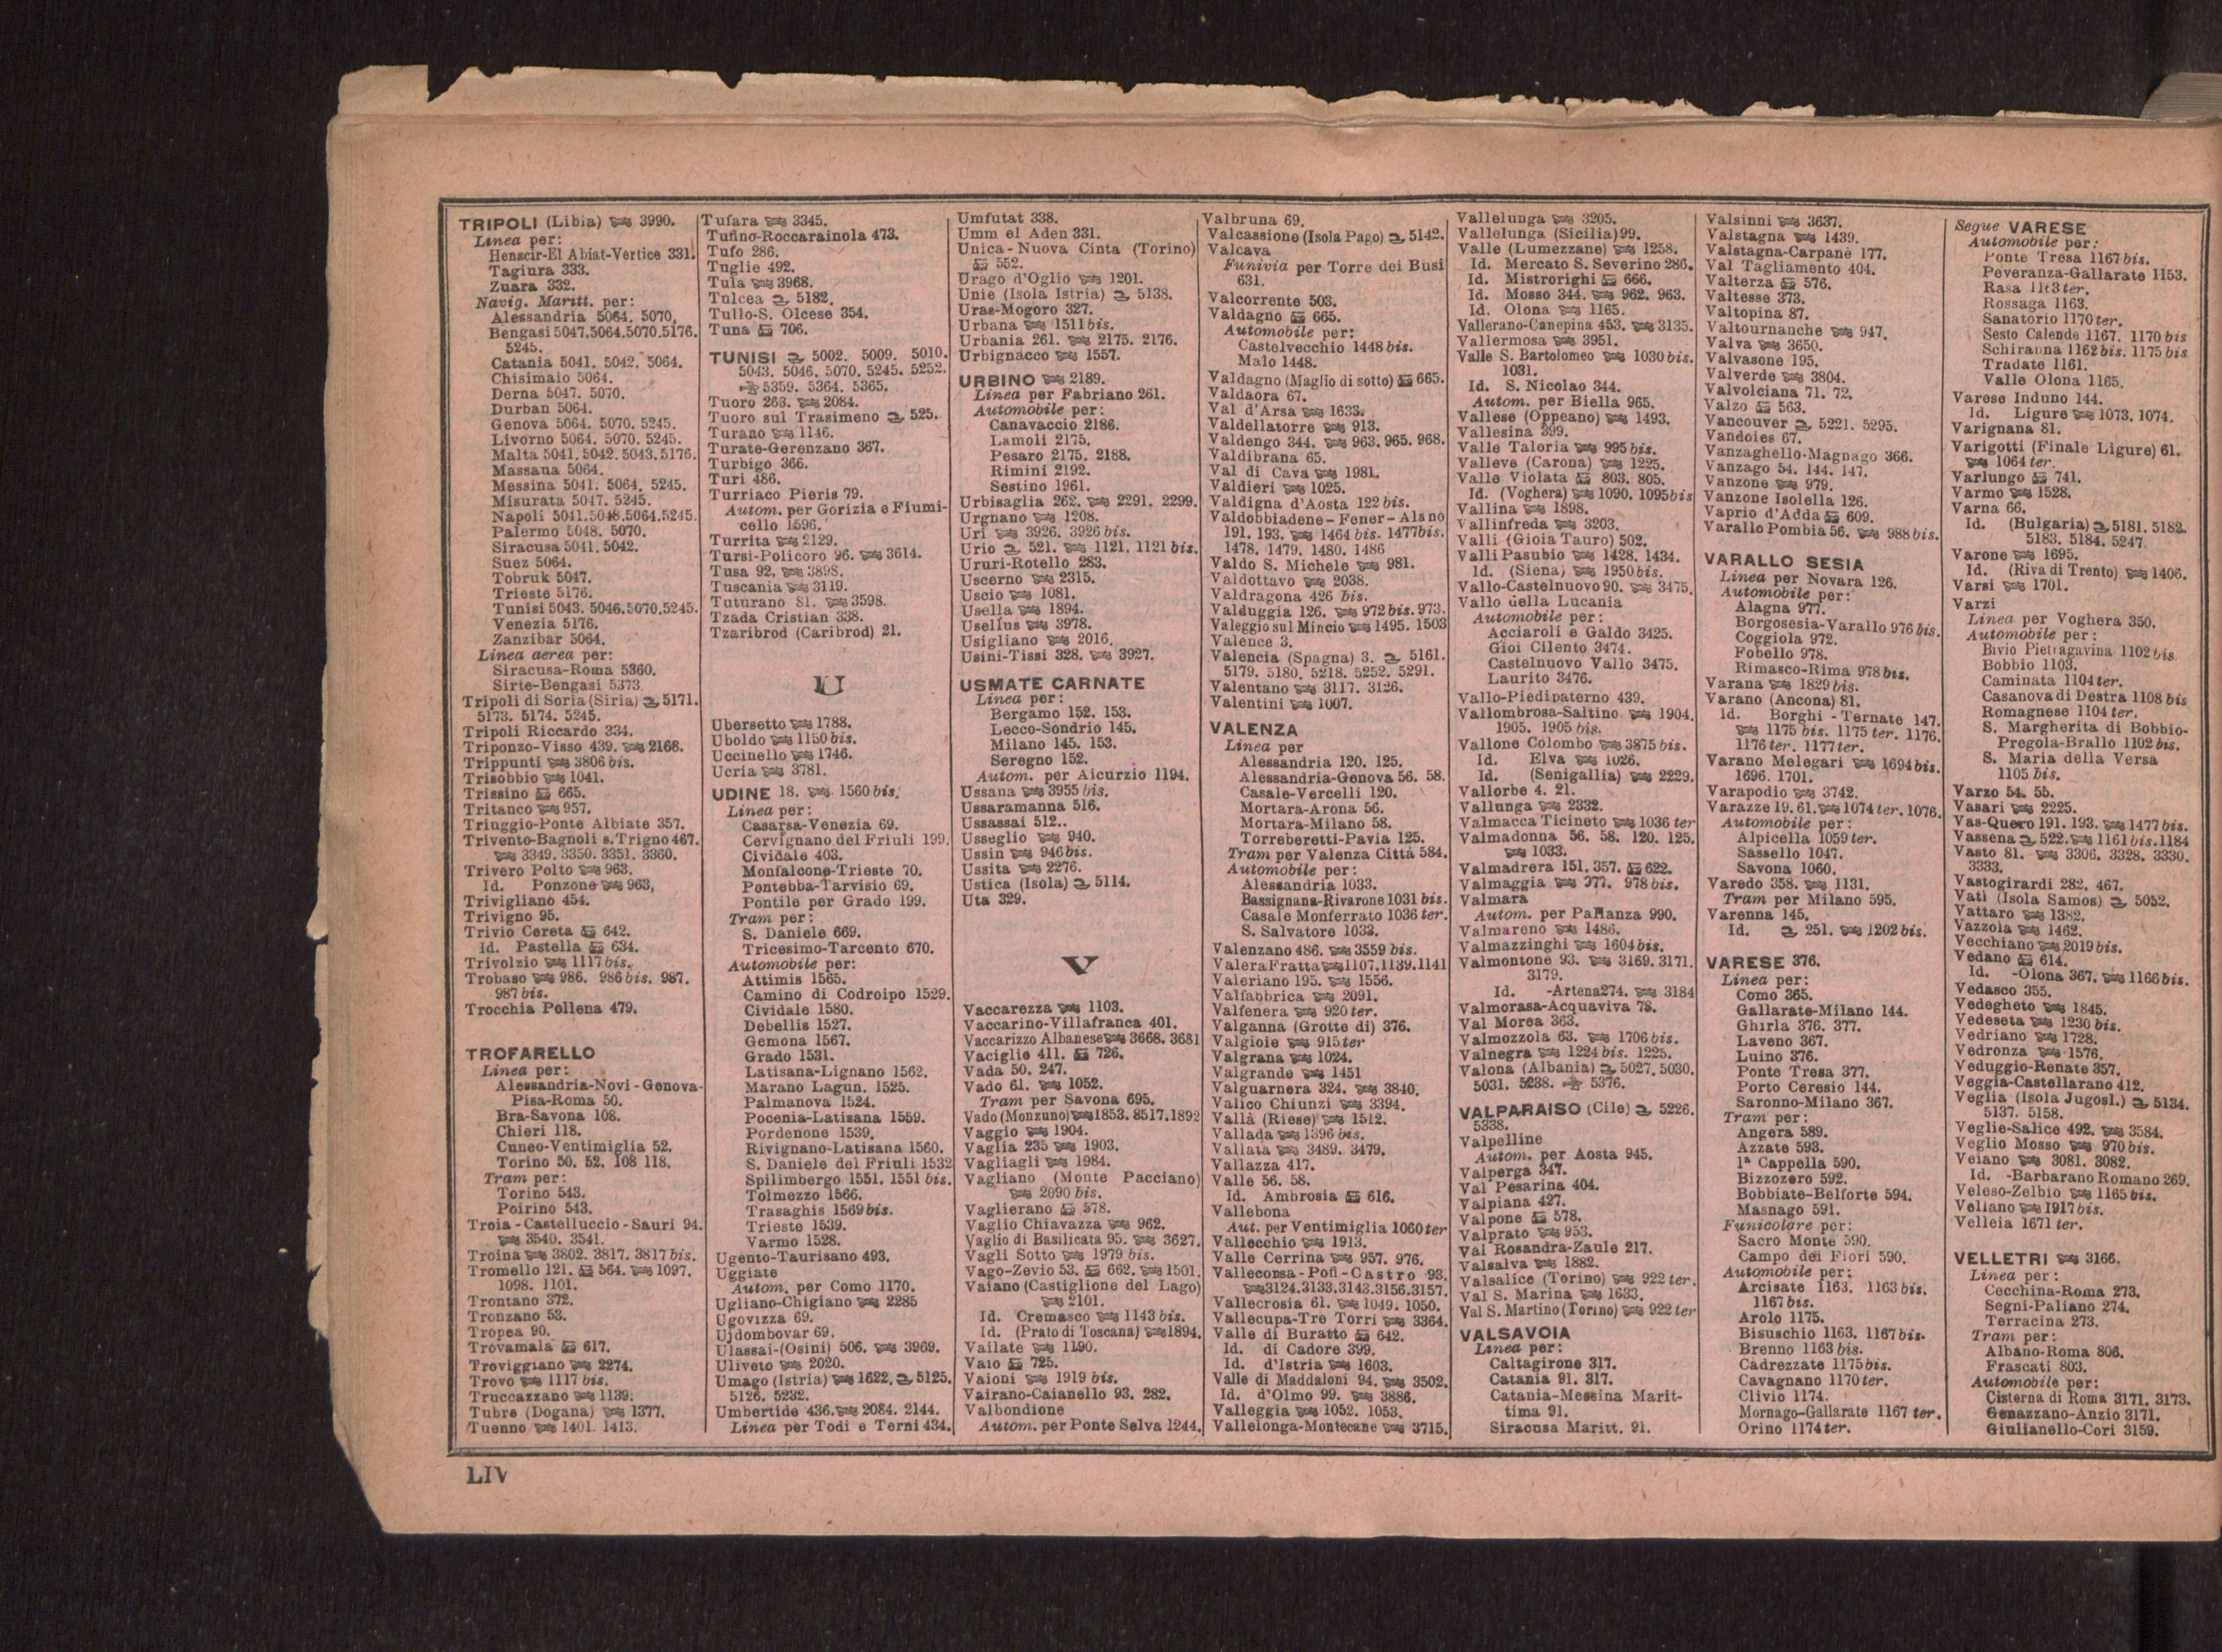 TRIPOLI (Libia) 3990.
Linea per:
Henscir-El Abiat-Vertice 331.
Tagiura 333.
Zuara 332.
Navig. Maritt. per:
Alessandria 5064. 5070.
Bengasi 5047.5064.5070.5176.
5245.
Catania 5041. 5042. 5064.
Chisimaio 5064.
Derna 5047. 5070.
Durban 5064.
Genova 5064. 5070. 5245.
Livorno 5064. 5070. 5245.
Malta 5041. 5042. 5043. 5176.
Massaua 5064.
Messina 5041. 5064. 5245.
Misurata 5047. 5245.
Napoli 5041.5048.5064.5245.
Palermo 5048. 5070.
Siracusa 5041. 5042.
Suez 5064.
Tobruk 5047.
Trieste 5176.
Tunisi 5043. 5046.5070.5245.
Venezia 5176.
Zanzibar 5064.
Linea aerea per:
Siracusa-Roma 5360.
Sirte-Bengasi 5373.
Tripoli di Soria (Siria) 5171.
5173. 5174. 5245.
Tripoli Riccardo 334.
Triponzo-Visso 439. 2168.
Trippunti 3806 bis.
Trisobbio 1041.
Trissino 665.
Tritanco 957.
Triuggio-Ponte Albiate 357.
Trivento-Bagnoli s. Trigno 467.
3349. 3350. 3351. 3360.
Trivero Polto 963.
Id. Ponzone 963,
Trivigliano 454.
Trivigno 95.
Trivio Cereta 642.
Id. Pastella 634.
Trivolzio 1117 bis.
Trobaso 986. 986 bis. 987.
987 bis.
Trocchia Pollena 479.
TROFARELLO
Linea per:
Alessandria-Novi-Genova-
Pisa-Roma 50.
Bra-Savona 108.
Chieri 118.
Cuneo-Ventimiglia 52.
Torino 50. 52. 108 118.
Tram per:
Torino 543.
Poirino 543.
Troia-Castelluccio-Sauri 94.
3540. 3541.
Troina 3802. 3817. 3817 bis.
Tromello 121. 564. 1097.
1098. 1101.
Trontano 372.
Tronzano 53.
Tropea 90.
Trovamala 617.
Troviggiano 2274.
Trovo 1117 bis.
Truccazzano 1139.
Tubre (Dogana) 1377.
Tuenno 1401. 1413.
Tufara 3345.
Tufino-Roccarainola 473.
Tufo 286.
Tuglie 492.
Tula 3968.
Tulcea 5182.
Tullo-S. Olcese 354.
Tuna 706.
TUNISI 5002. 5009. 5010.
5043. 5046. 5070. 5245. 5252.
5359. 5364. 5365.
Tuoro 263. 2084.
Tuoro sul Trasimeno 525.
Turano 1146.
Turate-Gerenzano 367.
Turbigo 366.
Turi 486.
Turriaco Pieris 79.
Autom. per Gorizia e Fiumi-
cello 1596.
Turrita 2129.
Tursi-Policoro 96. 3614.
Tusa 92. 3898.
Tuscania 3119.
Tuturano 81. 3598.
Tzada Cristian 338.
Tzaribrod (Caribrod) 21.
U
Ubersetto 1788.
Uboldo 1150 bis.
Uccinello 1746.
Ucria 3781.
UDINE 18. 1560 bis.
Linea per:
Casarsa-Venezia 69.
Cervignano del Friuli 199.
Cividale 403.
Monfalcone-Trieste 70.
Pontebba-Tarvisio 69.
Pontile per Grado 199.
Tram per:
S. Daniele 669.
Tricesimo-Tarcento 670.
Automobile per:
Attimis 1565.
Camino di Codroipo 1529.
Cividale 1580.
Debellis 1527.
Gemona 1567.
Grado 1531.
Latisana-Lignano 1562.
Marano Lagun. 1525.
Palmanova 1524.
Pocenia-Latisana 1559.
Pordenone 1539.
Rivignano-Latisana 1560.
S. Daniele del Friuli 1532
Spilimbergo 1551. 1551 bis.
Tolmezzo 1566.
Trasaghis 1569 bis.
Trieste 1539.
Varmo 1528.
Ugento-Taurisano 493.
Uggiate
Autom. per Como 1170.
Ugliano-Chigiano 2285
Ugovizza 69.
Ujdombovar 69.
Ulassai-(Osini) 506. 3969.
Uliveto 2020.
Umago (Istria) 1622. 5125.
5126. 5232.
Umbertide 436. 2084. 2144.
Linea per Todi e Terni 434.
Umfutat 338.
Umm el Aden 331.
Unica-Nuova Cinta (Torino)
552.
Urago d'Oglio 1201.
Unie (Isola Istria) 5138.
Uras-Mogoro 327.
Urbana 1511 bis.
Urbania 261. 2175. 2176.
Urbignacco 1557.
URBINO 2189.
Linea per Fabriano 261.
Automobile per:
Canavaccio 2186.
Lamoli 2175.
Pesaro 2175. 2188.
Rimini 2192.
Sestino 1961.
Urbisaglia 262. 2291. 2299.
Urgnano 1208.
Uri 3926. 3926 bis.
Urio 521. 1121. 1121 bis.
Ururi-Rotello 283.
Uscerno 2315.
Uscio 1081.
Usella 1894.
Usellus 3978.
Usigliano 2016.
Usini-Tissi 328. 3927.
USMATE CARNATE
Linea per:
Bergamo 152. 153.
Lecco-Sondrio 145.
Milano 145. 153.
Seregno 152.
Autom. per Aicurzio 1194.
Ussana 3955 bis.
Ussaramanna 516.
Ussassai 512..
Usseglio 940.
Ussin 946 bis.
Ussita 2276.
Ustica (Isola) 5114.
Uta 329.
V
Vaccarezza 1103.
Vaccarino-Villafranca 401.
Vaccarizzo Albanese 3668. 3681
Vaciglio 411. 726.
Vada 50. 247.
Vado 61. 1052.
Tram per Savona 695.
Vado (Monzuno) 1853. 8517.1892
Vaggio 1904.
Vaglia 235 1903.
Vagliagli 1984.
Vagliano (Monte Pacciano)
2090 bis.
Vaglierano 578.
Vaglio Chiavazza 962.
Vaglio di Basilicata 95. 3627.
Vagli Sotto 1979 bis.
Vago-Zevio 53. 662. 1501.
Vaiano (Castiglione del Lago)
2101.
Id. Cremasco 1143 bis.
Id. (Prato di Toscana) 1894.
Vailate 1190.
Vaio 725.
Vaioni 1919 bis.
Vairano-Caianello 93. 282.
Valbondione
Autom. per Ponte Selva 1244.
Valbruna 69.
Valcassione (Isola Pago) 5142.
Valcava
Funivia per Torre dei Busi
631.
Valcorrente 503.
Valdagno 665.
Automobile per:
Castelvecchio 1448 bis.
Malo 1448.
Valdagno (Maglio di sotto) 665.
Valdaora 67.
Val d'Arsa 1633.
Valdellatorre 913.
Valdengo 344. 963. 965. 968.
Valdibrana 65.
Val di Cava 1981.
Valdieri 1025.
Valdigna d'Aosta 122 bis.
Valdobbiadene-Fener-Alano
191. 193. 1464 bis. 1477bis.
1478. 1479. 1480. 1486
Valdo S. Michele 981.
Valdottavo 2038.
Valdragona 426 bis.
Valduggia 126. 972 bis. 973.
Valeggio sul Mincio 1495. 1503
Valence 3.
Valencia (Spagna) 3. 5161.
5179. 5180. 5218. 5252. 5291.
Valentano 3117. 3126.
Valentini 1007.
VALENZA
Linea per
Alessandria 120. 125.
Alessandria-Genova 56. 58.
Casale-Vercelli 120.
Mortara-Arona 56.
Mortara-Milano 58.
Torreberetti-Pavia 125.
Tram per Valenza Città 584.
Automobile per:
Alessandria 1033.
Bassignana-Rivarone 1031 bis.
Casale Monferrato 1036 ter.
S. Salvatore 1033.
Valenzano 486. 3559 bis.
Valera Fratta 1107.1139.1141
Valeriano 195. 1556.
Valfabbrica 2091.
Valfenera 920 ter.
Valganna (Grotte di) 376.
Valgioie 915 ter
Valgrana 1024.
Valgrande 1451
Valguarnera 324. 3840.
Valico Chiunzi 3394.
Vallà (Riese) 1512.
Vallada 1396 bis.
Vallata 3489. 3479.
Vallazza 417.
Valle 56. 58.
Id. Ambrosia 616.
Vallebona
Aut. per Ventimiglia 1060 ter
Vallecchio 1913.
Valle Cerrina 957. 976.
Vallecorsa-Pofi-Castro 93.
3124.3133.3143.3156.3157.
Vallecrosia 61. 1049. 1050.
Vallecupa-Tre Torri 3364.
Valle di Buratto 642.
Id. di Cadore 399.
Id. d'Istria 1603.
Valle di Maddaloni 94. 3502.
Id. d'Olmo 99. 3886.
Valleggia 1052. 1053.
Vallelonga-Montecane 3715.
Vallelunga 3205.
Vallelunga (Sicilia) 99.
Valle (Lumezzane) 1258.
Id. Mercato S. Severino 286.
Id. Mistrorighi 666.
Id. Mosso 344. 962. 963.
Id. Olona 1165.
Vallerano-Canepina 453. 3135.
Vallermosa 3951.
Valle S. Bartolomeo 1030 bis.
1031.
Id. S. Nicolao 344.
Autom. per Biella 965.
Vallese (Oppeano) 1493.
Vallesina 399.
Valle Taloria 995 bis.
Valleve (Carona) 1225.
Valle Violata 803. 805.
Id. (Voghera) 1090. 1095 bis
Vallina 1898.
Vallinfreda 3203.
Valli (Gioia Tauro) 502.
Valli Pasubio 1428. 1434.
Id. (Siena) 1950 bis.
Vallo-Castelnuovo 90. 3475.
Vallo della Lucania
Automobile per:
Acciaroli e Galdo 3425.
Gioi Cilento 3474.
Castelnuovo Vallo 3475.
Laurito 3476.
Vallo-Piedipaterno 439.
Vallombrosa-Saltino 1904.
1905. 1905 bis.
Vallone Colombo 3875 bis.
Id. Elva 1026.
Id. (Senigallia) 2229.
Vallorbe 4. 21.
Vallunga 2332.
Valmacca Ticineto 1036 ter
Valmadonna 56. 58. 120. 125.
1033.
Valmadrera 151. 357. 622.
Valmaggia 977. 978 bis.
Valmara
Autom. per Pallanza 990.
Valmareno 1486.
Valmazzinghi 1604 bis.
Valmontone 93. 3169. 3171.
3179.
Id. -Artena 274. 3184
Valmorasa-Acquaviva 78.
Val Morea 363.
Valmozzola 63. 1706 bis.
Valnegra 1224 bis. 1225.
Valona (Albania) 5027. 5030.
5031. 5238. 5376.
VALPARAISO (Cile) 5226.
5338.
Valpelline
Autom. per Aosta 945.
Valperga 347.
Val Pesarina 404.
Valpiana 427.
Valpone 578.
Valprato 953.
Val Rosandra-Zaule 217.
Valsalva 1882.
Valsalice (Torino) 922 ter.
Val S. Marina 1633.
Val S. Martino (Torino) 922 ter
VALSAVOIA
Linea per:
Caltagirone 317.
Catania 91. 317.
Catania-Messina Marit-
tima 91.
Siracusa Maritt. 91.
Valsinni 3637.
Valstagna 1439.
Valstagna-Carpanè 177.
Val Tagliamento 404.
Valterza 576.
Valtesse 373.
Valtopina 87.
Valtournanche 947.
Valva 3650.
Valvasone 195.
Valverde 3804.
Valvolciana 71. 72.
Valzo 563.
Vancouver 5221. 5295.
Vandoies 67.
Vanzaghello-Magnago 366.
Vanzago 54. 144. 147.
Vanzone 979.
Vanzone Isolella 126.
Vaprio d'Adda 609.
Varallo Pombia 56. 988 bis.
VARALLO SESIA
Linea per Novara 126.
Automobile per:
Alagna 977.
Borgosesia-Varallo 976 bis.
Coggiola 972.
Fobello 978.
Rimasco-Rima 978 bis.
Varana 1829 bis.
Varano (Ancona) 81.
Id. Borghi-Ternate 147.
1175 bis. 1175 ter. 1176.
1176 ter. 1177 ter.
Varano Melegari 1694 bis.
1696. 1701.
Varapodio 3742.
Varazze 19. 61. 1074 ter. 1076.
Automobile per:
Alpicella 1059 ter.
Sassello 1047.
Savona 1060.
Varedo 358. 1131.
Tram per Milano 595.
Varenna 145.
Id. 251. 1202 bis.
VARESE 376.
Linea per:
Como 365.
Gallarate-Milano 144.
Ghirla 376. 377.
Laveno 367.
Luino 376.
Ponte Tresa 377.
Porto Ceresio 144.
Saronno-Milano 367.
Tram per:
Angera 589.
Azzate 593.
1ª Cappella 590.
Bizzozero 592.
Bobbiate-Belforte 594.
Masnago 591.
Funicolare per:
Sacro Monte 590.
Campo dei Fiori 590.
Automobile per:
Arcisate 1163. 1163 bis.
1167 bis.
Arolo 1175.
Bisuschio 1163. 1167 bis.
Brenno 1163 bis.
Cadrezzate 1175 bis.
Cavagnano 1170 ter.
Clivio 1174.
Mornago-Gallarate 1167 ter.
Orino 1174 ter.
Segue VARESE
Automobile per:
Ponte Tresa 1167 bis.
Peveranza-Gallarate 1153.
Rasa 1163 ter.
Rossaga 1163.
Sanatorio 1170 ter.
Sesto Calende 1167. 1170 bis
Schiranna 1162 bis. 1175 bis
Tradate 1161.
Valle Olona 1165.
Varese Induno 144.
Id. Ligure 1073. 1074.
Varignana 81.
Varigotti (Finale Ligure) 61.
1064 ter.
Varlungo 741.
Varmo 1528.
Varna 66.
Id. (Bulgaria) 5181. 5182.
5183. 5184. 5247.
Varone 1695.
Id. (Riva di Trento) 1406.
Varsi 1701.
Varzi
Linea per Voghera 350.
Automobile per:
Bivio Pietragavina 1102 bis
Bobbio 1103.
Caminata 1104 ter.
Casanova di Destra 1108 bis
Romagnese 1104 ter.
S. Margherita di Bobbio-
Pregola-Brallo 1102 bis.
S. Maria della Versa
1105 bis.
Varzo 54. 55.
Vasari 2225.
Vas-Quero 191. 193. 1477 bis.
Vassena 522. 1161 bis. 1184
Vasto 81. 3306. 3328. 3330.
3333.
Vastogirardi 282. 467.
Vati (Isola Samos) 5052.
Vattaro 1382.
Vazzola 1462.
Vecchiano 2019 bis.
Vedano 614.
Id. -Olona 367. 1166 bis.
Vedasco 355.
Vedegheto 1845.
Vedeseta 1230 bis.
Vedriano 1728.
Vedronza 1576.
Veduggio-Renate 357.
Veggia-Castellarano 412.
Veglia (Isola Jugosl.) 5134.
5137. 5158.
Veglie-Salice 492. 3584.
Veglio Mosso 970 bis.
Veiano 3081. 3082.
Id. -Barbarano Romano 269.
Veleso-Zelbio 1165 bis.
Veliano 1917 bis.
Velleia 1671 ter.
VELLETRI 3166.
Linea per:
Cecchina-Roma 273.
Segni-Paliano 274.
Terracina 273.
Tram per:
Albano-Roma 806.
Frascati 803.
Automobile per:
Cisterna di Roma 3171. 3173.
Genazzano-Anzio 3171.
Giulianello-Cori 3159.
LIV